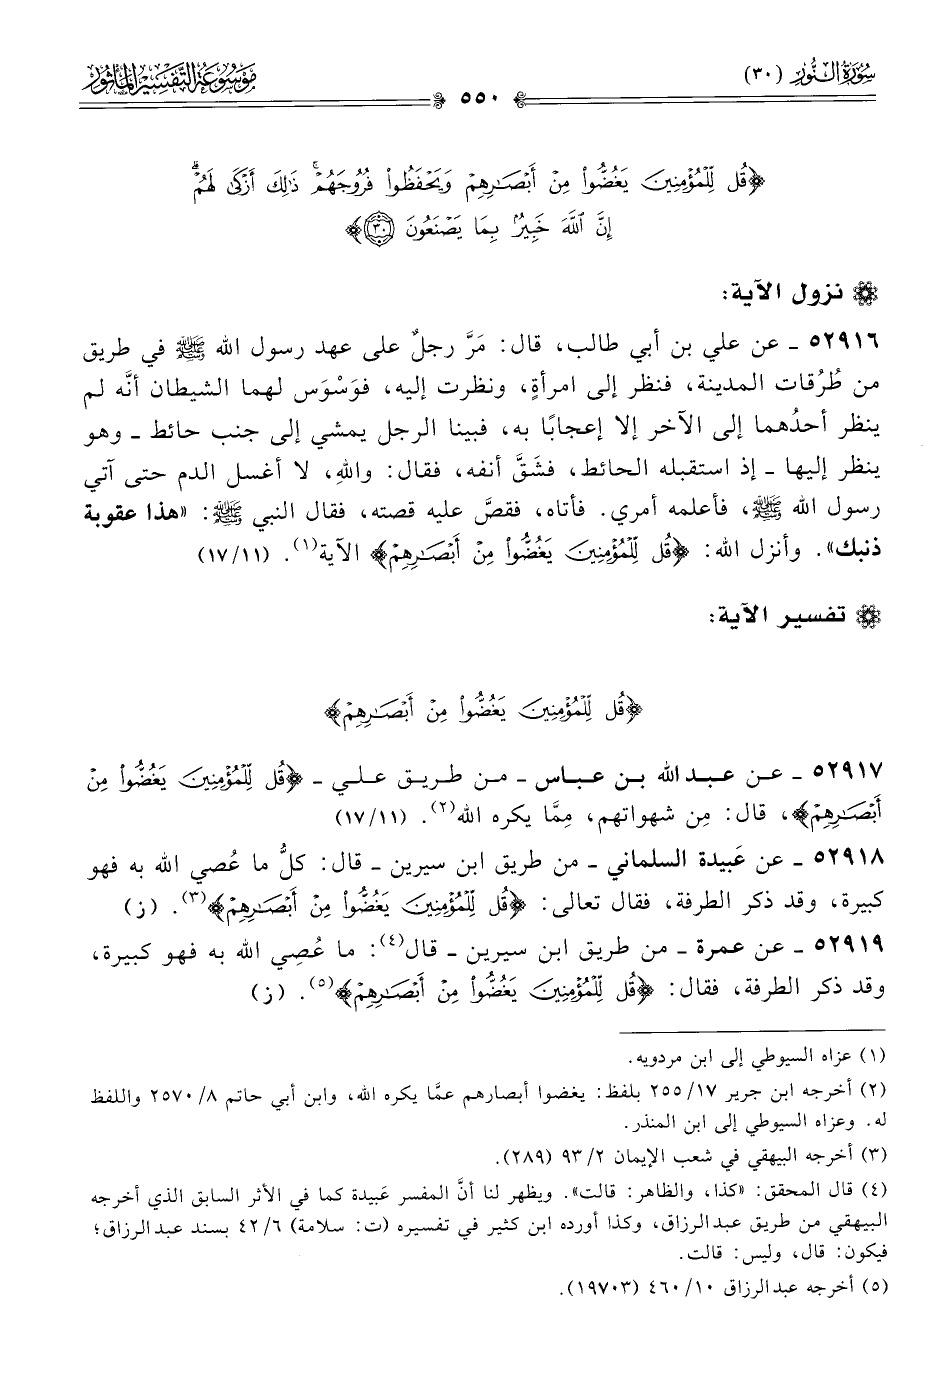 سُورَةُ النُّورِ (٣٠)
مَوْسُوعَة التَّفْسِيْر المَأْثُور
٥٥٠
﴿قُل لِّلْمُؤْمِنِينَ يَغُضُّوا۟ مِنْ أَبْصَـٰرِهِمْ وَيَحْفَظُوا۟ فُرُوجَهُمْ ۚ ذَٰلِكَ أَزْكَىٰ لَهُمْ ۗ
إِنَّ ٱللَّهَ خَبِيرٌۢ بِمَا يَصْنَعُونَ ۝٣٠﴾
نزول الآية:
٥٢٩١٦ ـ عن علي بن أبي طالب، قال: مَرَّ رجلٌ على عهد رسول الله ﷺ في طريق
من طُرُقات المدينة، فنظر إلى امرأةٍ، ونظرت إليه، فوَسْوَس لهما الشيطان أنَّه لم
ينظر أحدُهما إلى الآخر إلا إعجابًا به، فبينا الرجل يمشي إلى جنب حائط ـ وهو
ينظر إليها ـ إذ استقبله الحائط، فشَقَّ أنفه، فقال: واللهِ، لا أغسل الدم حتى آتي
رسول الله ﷺ، فأعلمه أمري. فأتاه، فقصَّ عليه قصته، فقال النبي ﷺ: «هذا عقوبة
ذنبك». وأنزل الله: ﴿قُل لِّلْمُؤْمِنِينَ يَغُضُّوا۟ مِنْ أَبْصَـٰرِهِمْ﴾ الآية(١). (١١/١٧)
تفسير الآية:
﴿قُل لِّلْمُؤْمِنِينَ يَغُضُّوا۟ مِنْ أَبْصَـٰرِهِمْ﴾
٥٢٩١٧ ـ عن عبد الله بن عباس ـ من طريق علي ـ ﴿قُل لِّلْمُؤْمِنِينَ يَغُضُّوا۟ مِنْ
أَبْصَـٰرِهِمْ﴾، قال: مِن شهواتهم، مِمَّا يكره الله(٢). (١١/١٧)
٥٢٩١٨ ـ عن عَبيدة السلماني ـ من طريق ابن سيرين ـ قال: كلُّ ما عُصي الله به فهو
كبيرة، وقد ذكر الطرفة، فقال تعالى: ﴿قُل لِّلْمُؤْمِنِينَ يَغُضُّوا۟ مِنْ أَبْصَـٰرِهِمْ﴾(٣). (ز)
٥٢٩١٩ ـ عن عمرة ـ من طريق ابن سيرين ـ قال(٤): ما عُصِي الله به فهو كبيرة،
وقد ذكر الطرفة، فقال: ﴿قُل لِّلْمُؤْمِنِينَ يَغُضُّوا۟ مِنْ أَبْصَـٰرِهِمْ﴾(٥). (ز)
(١) عزاه السيوطي إلى ابن مردويه.
(٢) أخرجه ابن جرير ١٧/٢٥٥ بلفظ: يغضوا أبصارهم عمَّا يكره الله، وابن أبي حاتم ٨/٢٥٧٠ واللفظ
له. وعزاه السيوطي إلى ابن المنذر.
(٣) أخرجه البيهقي في شعب الإيمان ٢/٩٣ (٢٨٩).
(٤) قال المحقق: «كذا، والظاهر: قالت». ويظهر لنا أنَّ المفسر عَبيدة كما في الأثر السابق الذي أخرجه
البيهقي من طريق عبد الرزاق، وكذا أورده ابن كثير في تفسيره (ت: سلامة) ٦/٤٢ بسند عبد الرزاق؛
فيكون: قال، وليس: قالت.
(٥) أخرجه عبد الرزاق ١٠/٤٦٠ (١٩٧٠٣).